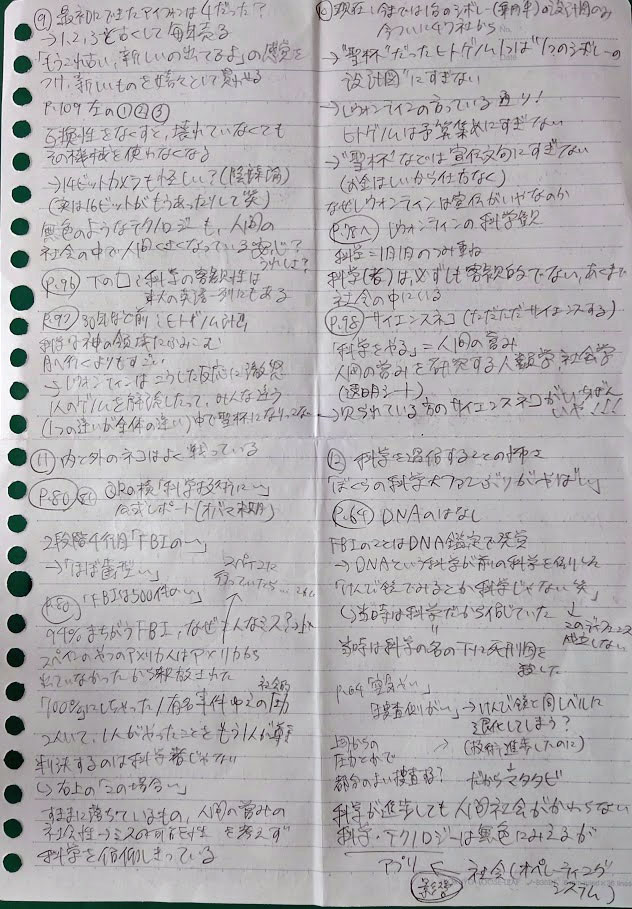 ⑨ 最初にできたアイフォンは4だった?
→1,2,3と古くして毎年売る
「もうこれ古い、新しいの出てるよ」の感覚を
つけ、新しいものを嬉々として買わせる
P.109 左の①②③
互換性をなくすと、壊れていなくても
その機械を使わなくなる
→14ビットカメラも怪しい?(陰謀論)
(実は16ビットがもうあったりして笑)
無色のようなテクノロジーも、人間の
社会の中で人間くさくなっている
P.96 下の口で科学の客観性は
東大の英語一列にもある
P.97 30年ほど前にヒトゲノム計画
科学は神の領域にふみこむ
月へ行くよりもすごい
→レウォンティンはこうした反応に激怒
1人のゲノムを解読したって、みんな違う
(1つの違いが全体の違い)中で聖杯に
⑩ 現在、今までは1台のシボレー の設計図のみ
→"聖杯"だったヒトゲノム1つは"1つのシボレーの
設計図"にすぎない
→レウォンティンの言っている通り!
ヒトゲノムは予算集めにすぎない
→"聖杯"などは宣伝文句にすぎない
(お金ほしいから仕方なく)
なぜレウォンティンは宣伝がいやなのか
P.78へ レウォンティンの科学観
科学=1月1月のつみ重ね
科学(者)は、必ずしも客観的でない、あくまで
社会の中にいる
P.98 サイエンスネコ(ただただサイエンスする)
「科学をやる」=人間の営み
人間の営みを研究する人類学、社会学
(透明シート)
→見られている方のサイエンスネコがいちばん
いや!!!
⑪ 内と外のネコはよく戦っている
P.80 の横「科学技術に〜」
公式レポート(オバマ末期)
2段階4行目「FBIの〜」
→「ほぼ〜」
スペインに
行っていたら
P.80 「FBIは500件の〜」
94%まちがうFBI、なぜ
スペインのやつのアメリカ人はアメリカから
出ていなかったから釈放された
「100%にしちゃった/有名事件ゆえの社会的圧力
2人いて、1人がやったことをもう1人が
判決するのは科学者じゃない
→右上の「この場合〜」
すきまに落ちているもの、人間の営みの
社会性→ミスの可能性 を考えず
科学を信仰しきっている
⑫ 科学を過信することの怖さ
「ぼくらの科学大スキぶりがやばい」
P.64 DNAのはなし
FBIのことはDNA鑑定で発覚
→DNAという科学が前の科学を
「けんび鏡でみるとか科学じゃない笑」
→当時は科学だから信じていた
成立しない
当時は科学の名の下に死刑囚を
殺した
P.64 → けんび鏡と同レベルに
退化してしまう?
(技術進歩したのに)
上からの
圧力とかで
都合のよい捜査する?
だからマタタビ
科学が進歩しても人間社会がかわらない
科学・テクノロジーは無色にみえるが
アプリ ← 社会(オペレーティング
システム)
影響